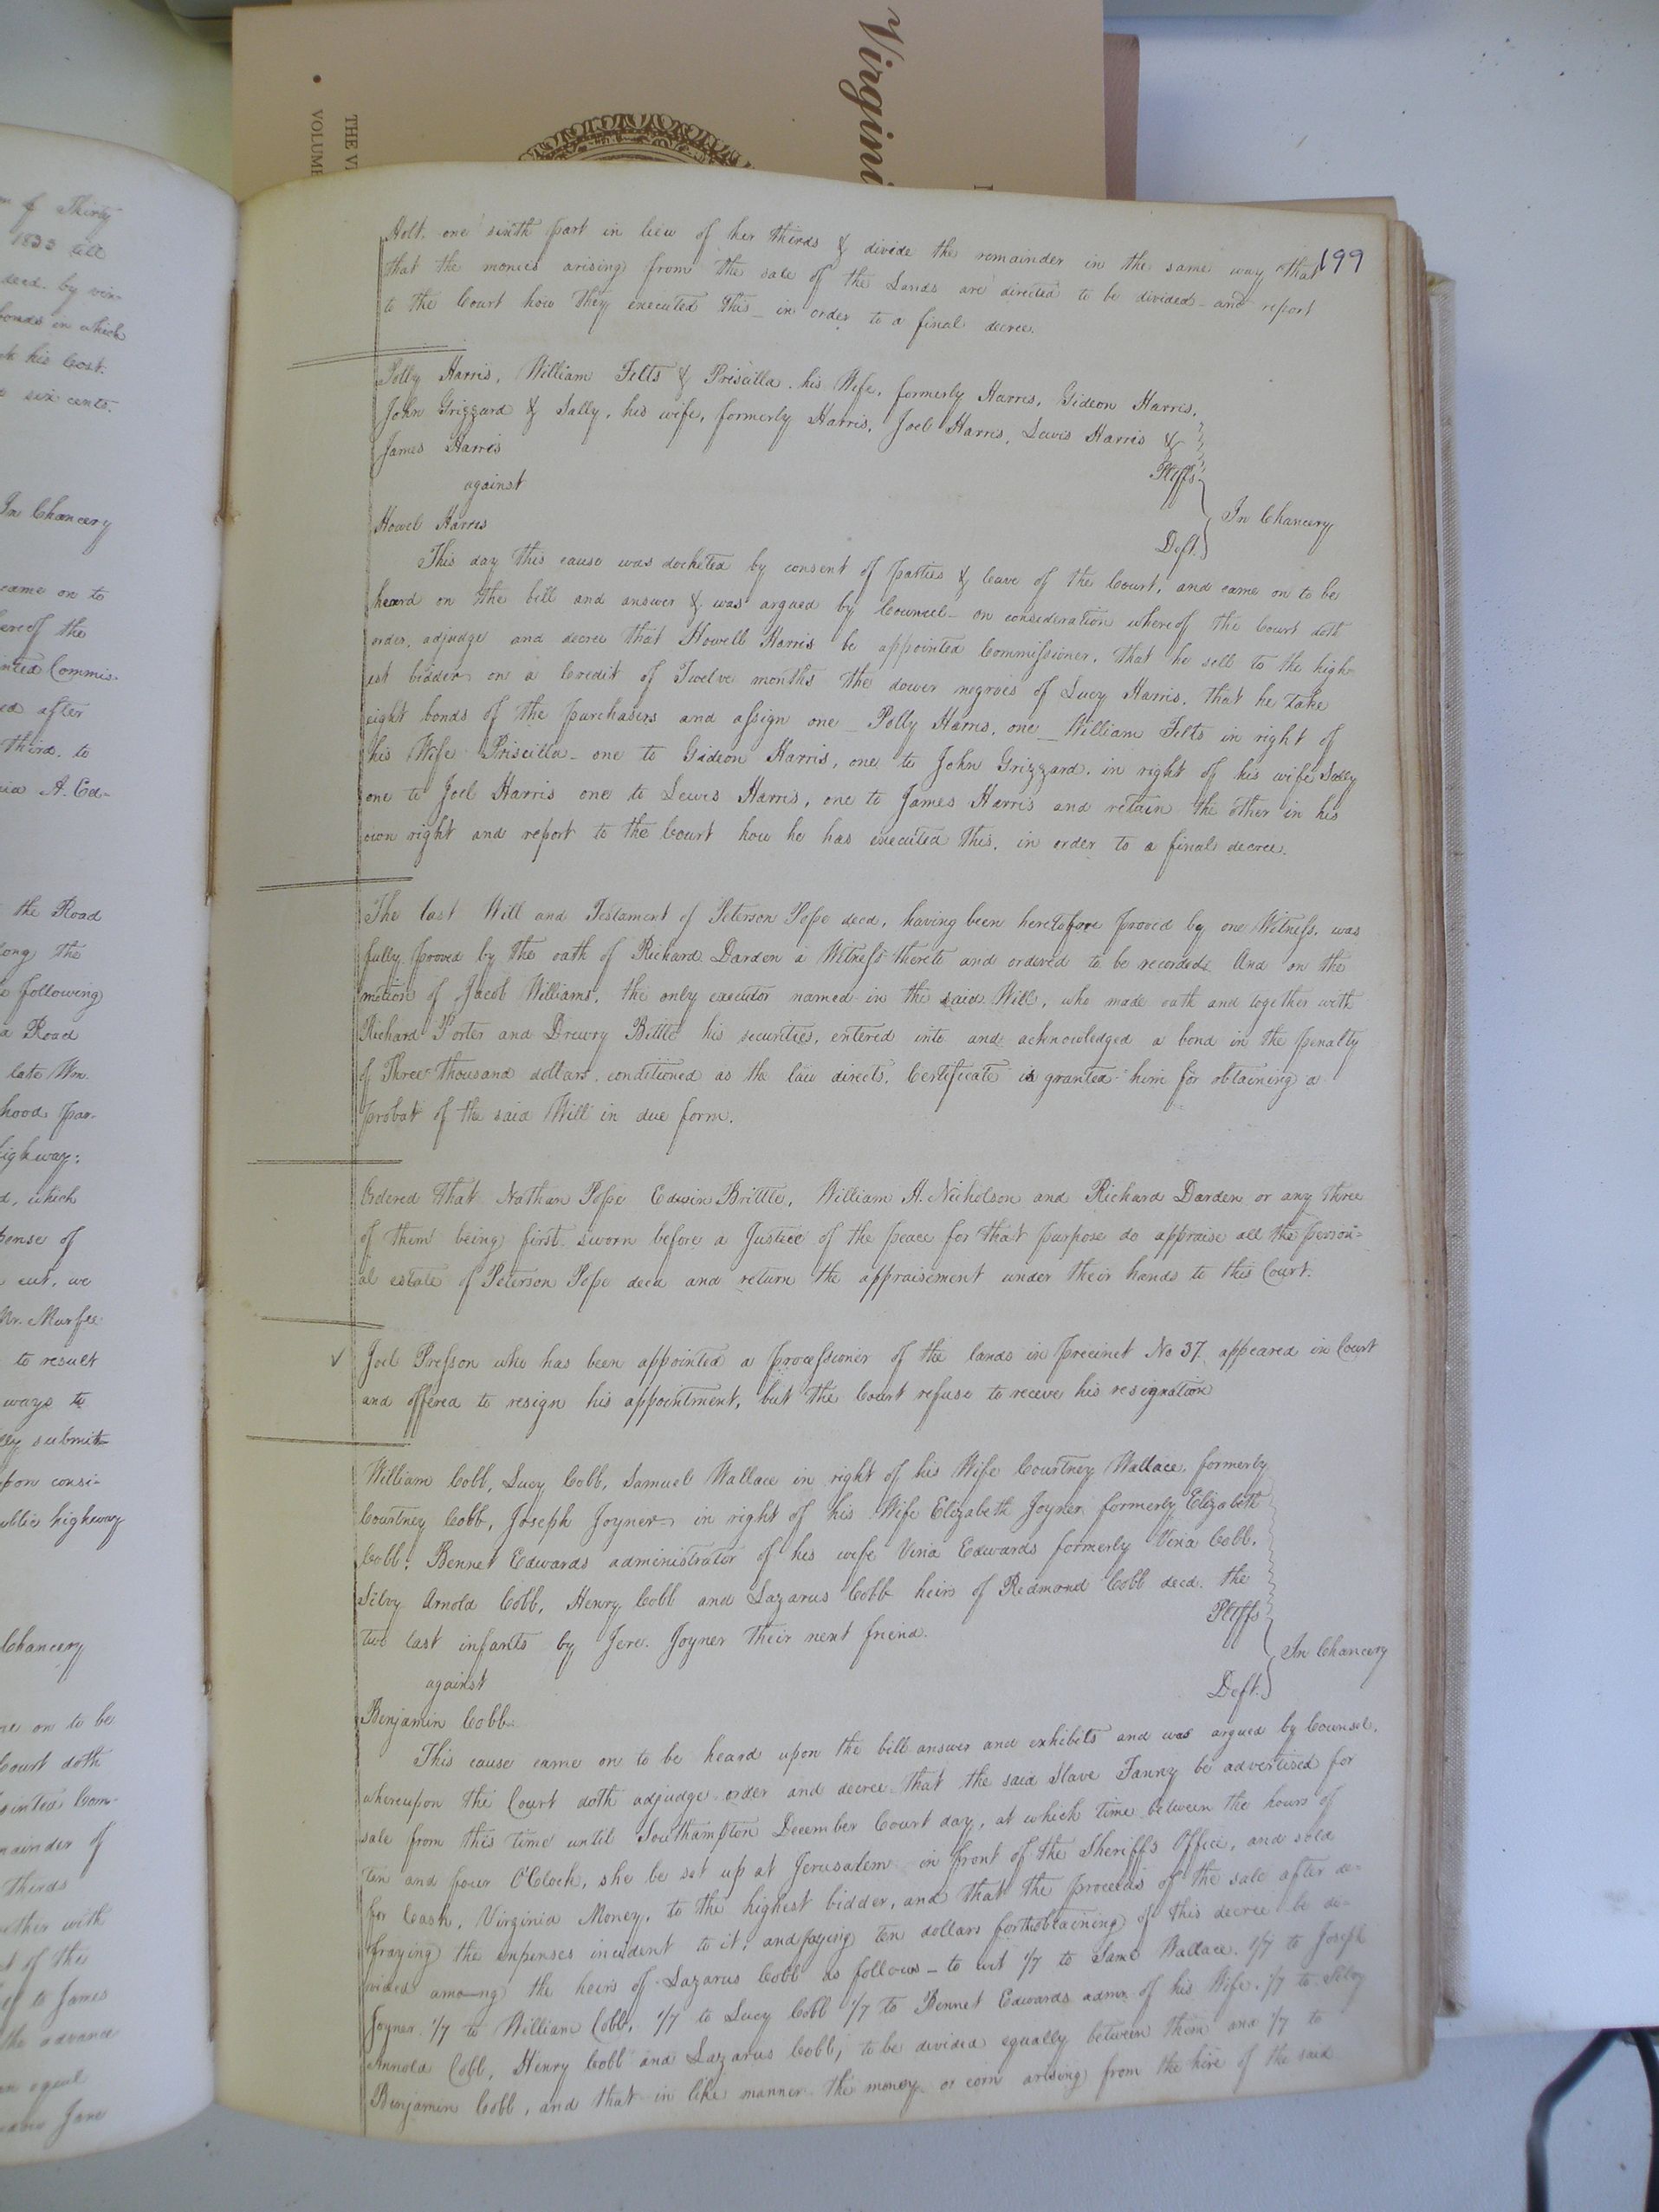 Virgini
THE V
• VOLUME
m of Thirty
1833 till
decd. by vir-
bonds in which
his Cost.
six cents.
In Chancery
came on to
hereof the
inted Commis-
ed after
third, to
A. Ed-
the Road
long the
following
a Road
late Wm.
hood par-
highway:
d, which
pense of
cut, we
Mr. Murfee
to result
ways to
lly submit-
upon consi-
ublic highway
Chancery
me on to be
Court doth
ointed Com-
mainder of
thirds
gether with
t of the
to James
the advance
equal
Jane
199
Holt. one sixth part in lieu of her thirds & divide the remainder in the same way that
that the monies arising from the sale of the Lands are directed to be divided - and report
to the Court how they executed this - in order to a final decree.
Polly Harris, William Felts & Priscilla his Wife, formerly Harris, Gideon Harris,
John Grizzard & Sally, his wife, formerly Harris, Joel Harris, Lewis Harris &
James Harris
Pltffs
against
In Chancery
Howel Harris
Deft.
This day this cause was docketed by consent of parties & leave of the Court, and came on to be
heard on the bill and answer & was argued by Counsel - on consideration whereof the Court doth
order, adjudge and decree that Howell Harris be appointed Commissioner, that he sell to the high-
est bidder on a Credit of Twelve months the dower negroes of Lucy Harris, that he take
eight bonds of the purchasers and assign one _ Polly Harris, one _ William Felts in right of
his Wife Priscilla - one to Gideon Harris, one to John Grizzard, in right of his wife Sally
one to Joel Harris one to Lewis Harris, one to James Harris and retain the other in his
own right and report to the Court how he has executed this, in order to a final decree.
The last Will and Testament of Peterson Pope decd, having been heretofore proved by one Witness, was
fully proved by the oath of Richard Darden a Witness thereto and ordered to be recorded. And on the
motion of Jacob Williams, the only executor named in the said Will, who made oath and together with
Richard Porter and Drewry Bittle his securities, entered into and acknowledged a bond in the penalty
of Three thousand dollars, conditioned as the law directs, Certificate is granted him for obtaining a
probat of the said Will in due form.
Ordered that Nathan Pope Edwin Brittle, William A. Nicholson and Richard Darden or any three
of them being first sworn before a Justice of the peace for that purpose do appraise all the person-
al estate of Peterson Pope decd and return the appraisement under their hands to this Court.
✓ Joel Presson who has been appointed a processioner of the lands in precinct No 37. appeared in Court
and offered to resign his appointment, but the Court refuse to receve his resignation
William Cobb, Lucy Cobb, Samuel Wallace in right of his Wife Courtney Wallace, formerly
Courtney Cobb, Joseph Joyner in right of his Wife Elizabeth Joyner formerly Elizabeth
Cobb, Bennet Edwards administrator of his wife Vina Edwards formerly Vina Cobb.
Silvy Arnold Cobb, Henry Cobb and Lazarus Cobb heirs of Redmond Cobb decd. the
two last infants by Jere. Joyner their next friend.
Pltffs
against
In Chancery
Deft.
Benjamin Cobb
This cause came on to be heard upon the bill answer and exhibits and was argued by Counsel,
whereupon the Court doth adjudge order and decree that the said Slave Fanny be advertised for
sale from this time until Southampton December Court day, at which time between the hours of
ten and four O'Clock, she be set up at Jerusalem in front of the Sheriff's Office, and sold
for Cash, Virginia Money, to the highest bidder, and that the proceeds of the sale after de-
fraying the expenses incident to it, and paying ten dollars for the obtaining of this decree be de-
vided among the heirs of Lazarus Cobb as follows - to wit 1/7 to Saml Wallace. 1/7 to Joseph
Joyner 1/7 to William Cobb, 1/7 to Lucy Cobb 1/7 to Bennet Edwards admr. of his Wife. 1/7 to Silvy
Annold Cobb, Henry Cobb and Lazarus Cobb, to be divided equally between them and 1/7 to
Benjamin Cobb, and that in like manner the money or corn arising from the hire of the said